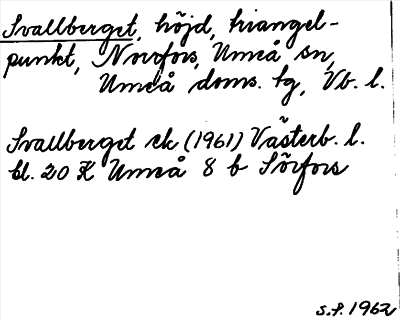 Svallberget, höjd, triangel-
punkt, Norrfors, Umeå sn,
Umeå doms. tg, Vb. l.
Svallberget ek (1961) Västerb. l.
bl. 20 K Umeå 8 b Sörfors
s.f. 1962